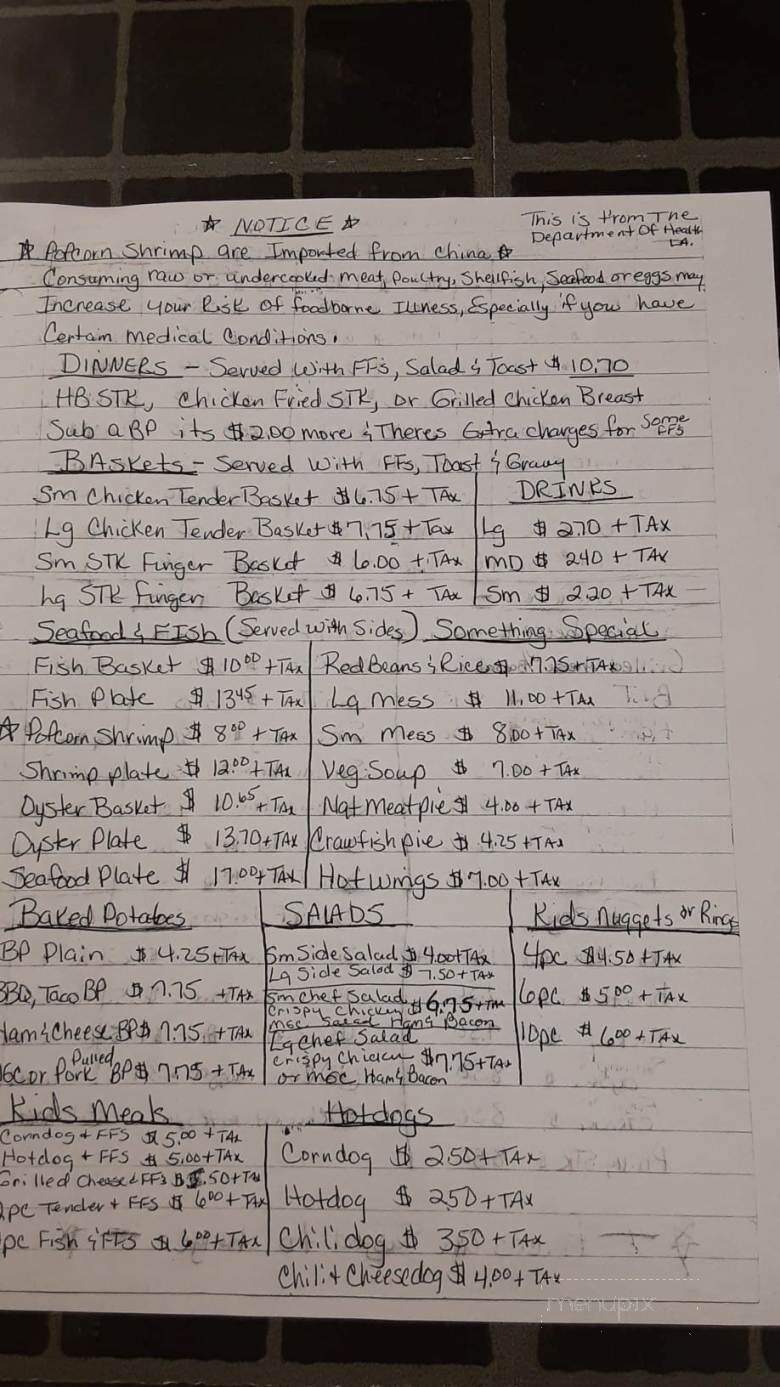 ☆ NOTICE ☆
This is from The
Department Of Health
LA.
☆ Popcorn Shrimp are Imported from China ☆
Consuming raw or undercooked meat, Poultry, Shellfish, Seafood or eggs may
Increase your Risk Of foodborne Illness, Especially if you have
Certain medical Conditions.
DINNERS - Served With FFs, Salad & Toast $ 10.70
HB STK, Chicken Fried STK, Or Grilled Chicken Breast
Sub a BP its $2.00 more & Theres Extra charges for Some FFS
BASKETS - Served With FFs, Toast & Gravy
Sm Chicken Tender Basket $6.75 + TAx
Lg Chicken Tender Basket $7.75 + Tax
Sm STK Finger Basket $ 6.00 + TAx
Lg STK Finger Basket $ 6.75 + TAx
DRINKS
Lg $ 2.70 + TAx
MD $ 2.40 + TAx
Sm $ 2.20 + TAx
Seafood & FISh (Served with Sides)
Fish Basket $ 10.00 + TAx
Fish Plate $ 13.45 + TAx
☆ Popcorn Shrimp $ 8.00 + TAx
Shrimp plate $ 12.00 + TAx
Oyster Basket $ 10.65 + TAx
Oyster Plate $ 13.70 + TAx
Seafood Plate $ 17.00 + TAx
Something Special
Red Beans & Rice $ 7.75 + TAx
Lg Mess $ 11.00 + TAx
Sm Mess $ 8.00 + TAx
Veg. Soup $ 7.00 + TAx
Nat Meat pie $ 4.00 + TAx
Crawfish pie $ 4.25 + TAx
Hot wings $ 7.00 + TAx
Baked Potatoes
BP Plain $ 4.25 + TAx
BBQ, Taco BP $ 7.75 + TAx
Ham & Cheese BP $ 7.75 + TAx
Pulled
or Pork BP $ 7.75 + TAx
SALADS
Sm Side Salad $ 4.00 + TAx
Lg Side Salad $ 7.50 + TAx
Sm Chef Salad
Crispy Chicken $ 6.75 + TAx
MGC Salad Ham & Bacon
Lg Chef Salad
Crispy Chicken $7.75 + TAx
or MGC Ham & Bacon
Kids Nuggets or Rings
4pc $4.50 + TAx
6pc $ 5.00 + TAx
10pc $ 6.00 + TAx
Kids Meals
Corndog + FFS $ 5.00 + TAx
Hotdog + FFS $ 5.00 + TAx
Grilled Cheese & FFs .50 + TAx
pc Tender + FFS $ 6.00 + TAx
pc Fish & FFS $ 6.00 + TAx
Hotdogs
Corndog $ 2.50 + TAx
Hotdog $ 2.50 + TAx
Chili dog $ 3.50 + TAx
Chili & Cheesedog $ 4.00 + TAx
menupix